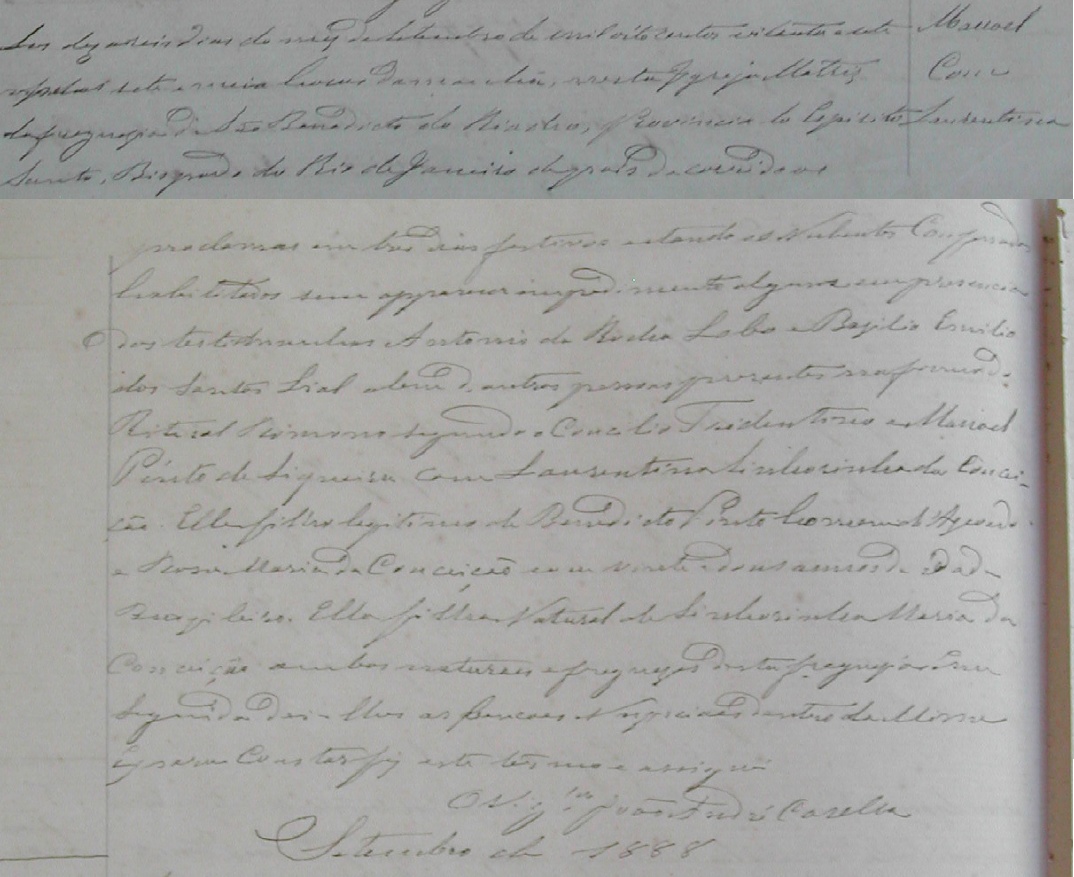 Aos dezaseis dias do mez de Setembro de mil oito centos e oitenta e oito
Manoel
as sete e meia horas da manhã, nesta Igreja Matriz
Com
da freguezia de São Benedicto do Riacho, Provincia do Espirito
Laurentina
Santo, Bispado do Rio de Janeiro depois de corridos os
proclamas em tres dias festivos estando os Nubentes Comparados
habilitados sem apparecer impedimento algum em presencia
das testemunhas Antonio da Rocha Lobo e Bazilio Emilio
dos Santos Lial alem de outras pessoas presentes na forma do
Ritual Romano segundo o Concilio Tridentino a Manoel
Pinto de Siqueira com Laurentina Sinhorinha da Concei-
ção. Elle filho legitimo de Benedicto Pinto Correia d'Azevedo
e Rosa Maria da Conceição com vinte e dous annos de idade
Brazileiro. Ella filha Natural de Sinhorinha Maria da
Conceição ambos naturaes e freguezes desta freguezia Em
seguida dei-lhes as bencaos Nupciaes dentro da Missa
E para Constar fiz este termo e assignei
O Vigrio João André Casella
Setembro de 1888